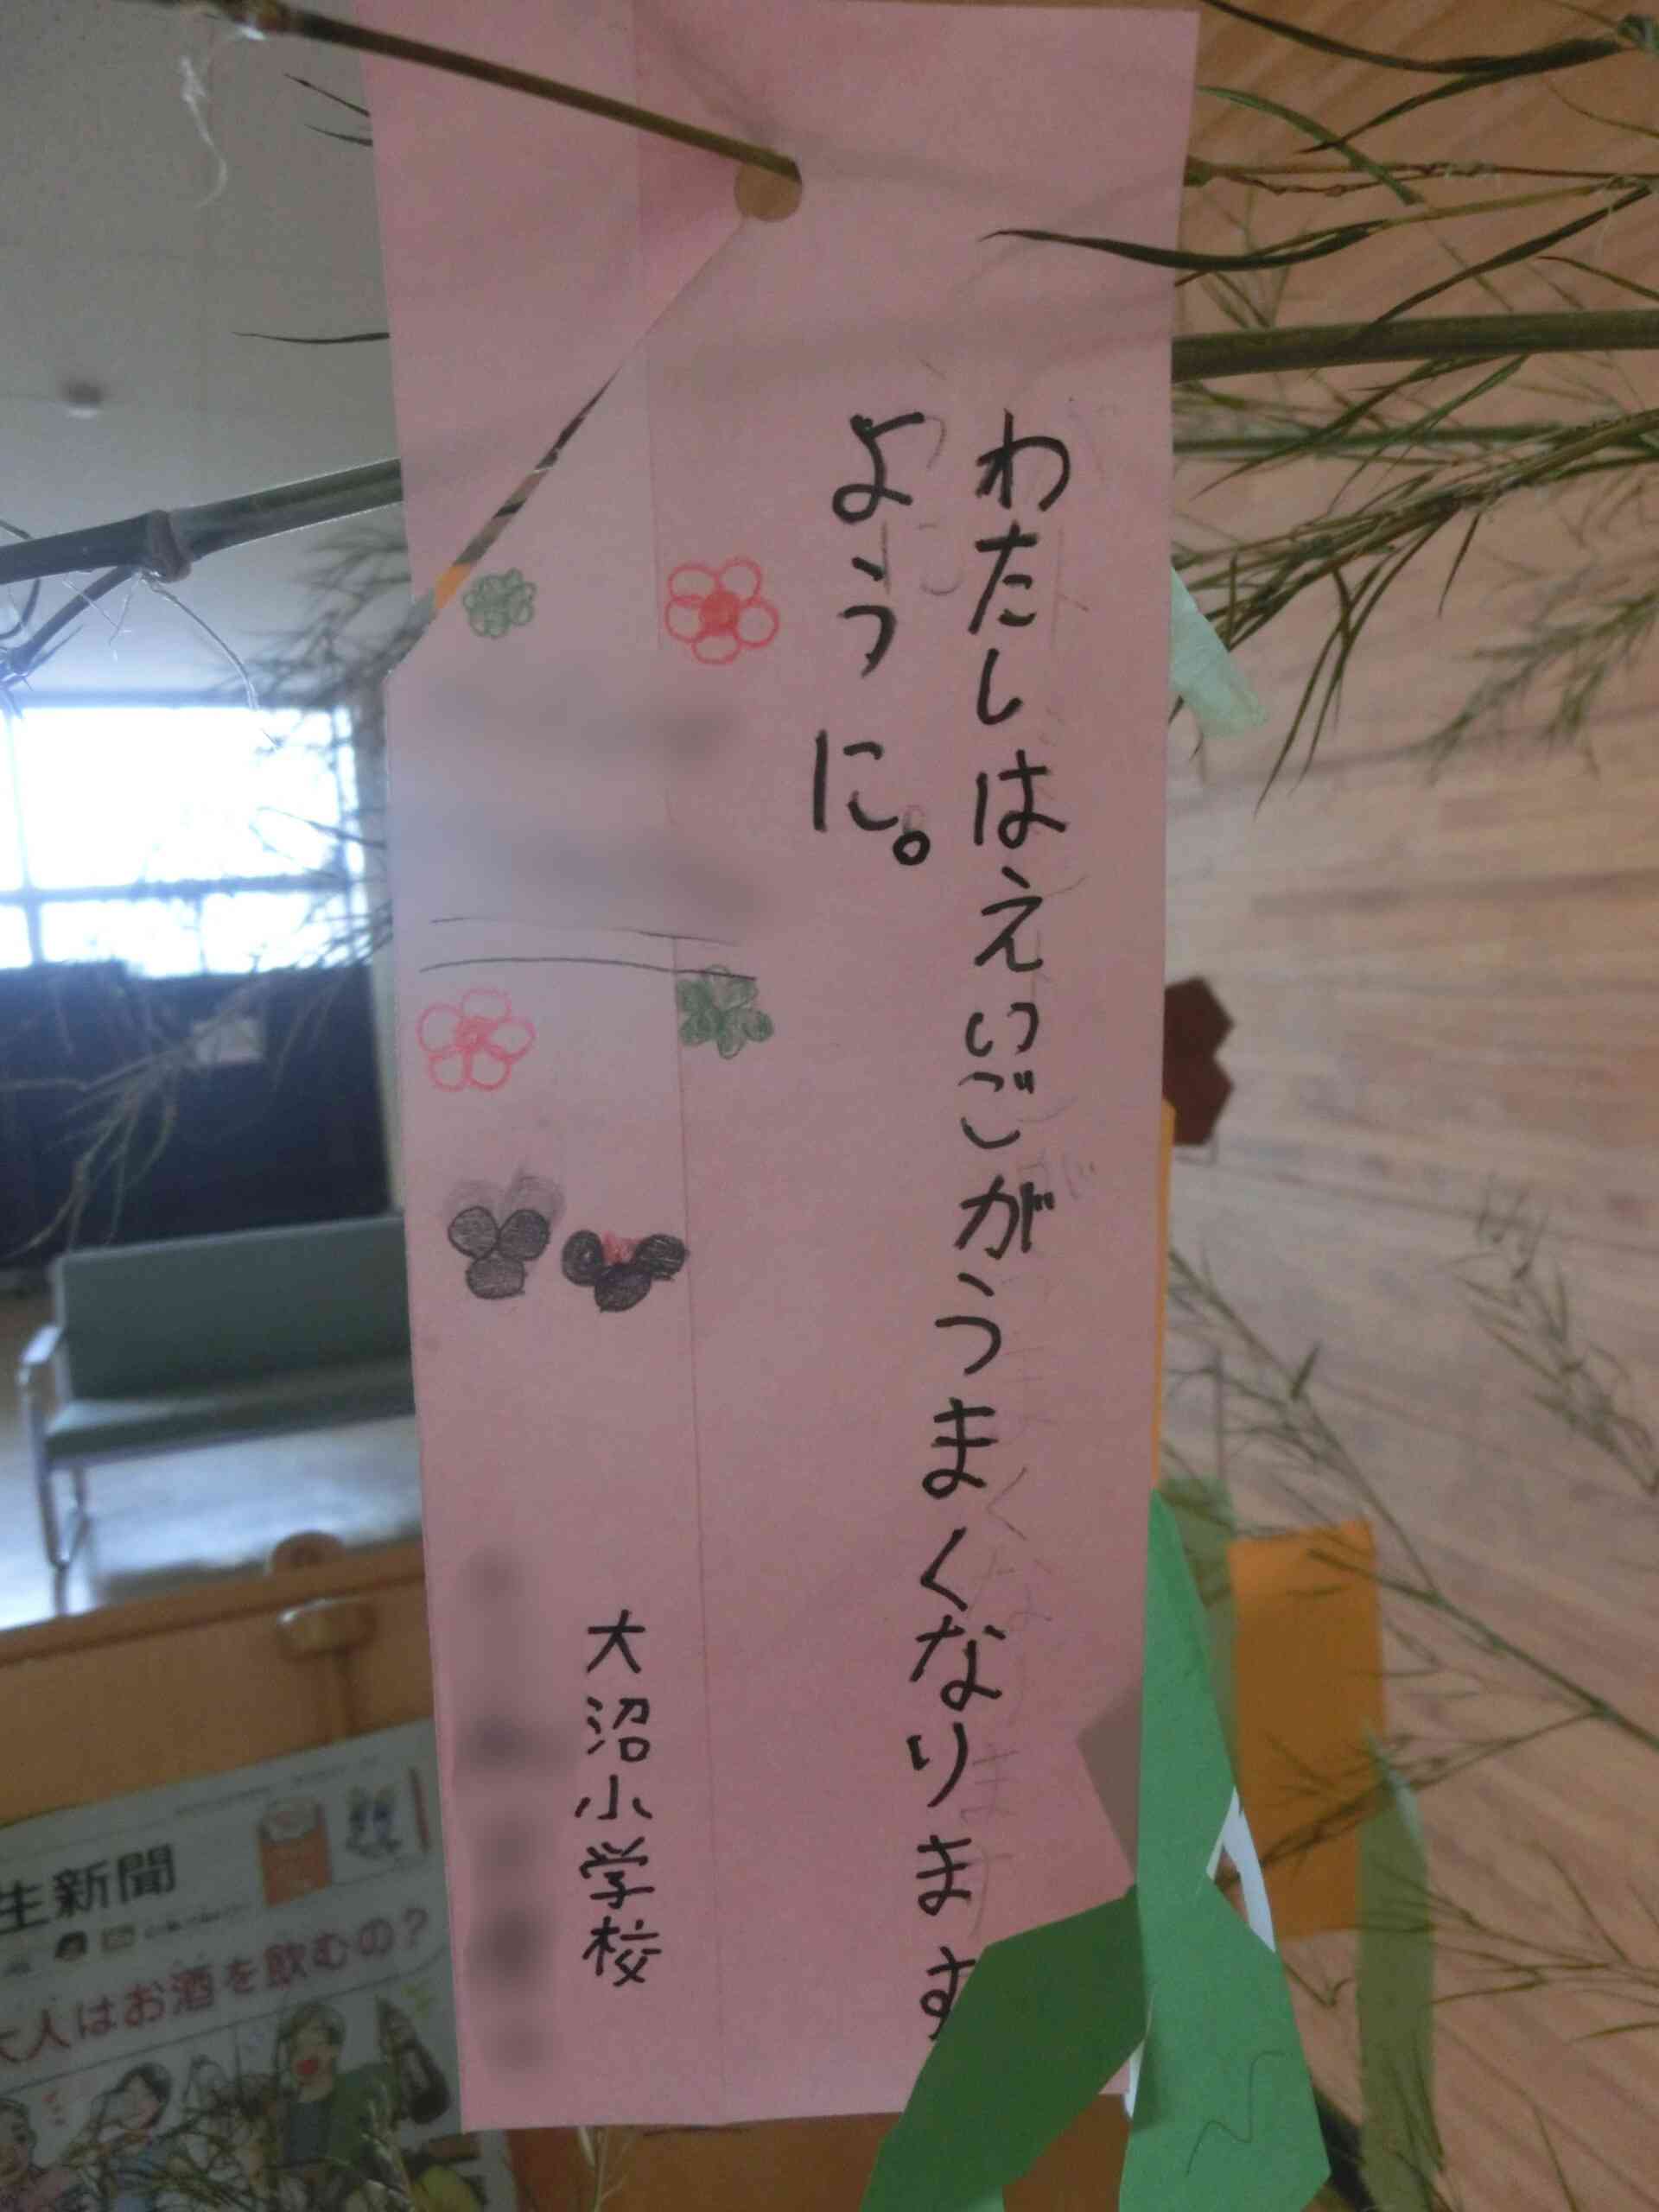 わたしはえいごがうまくなります
ように。
大沼小学校
生新聞
大人はお酒を飲むの?